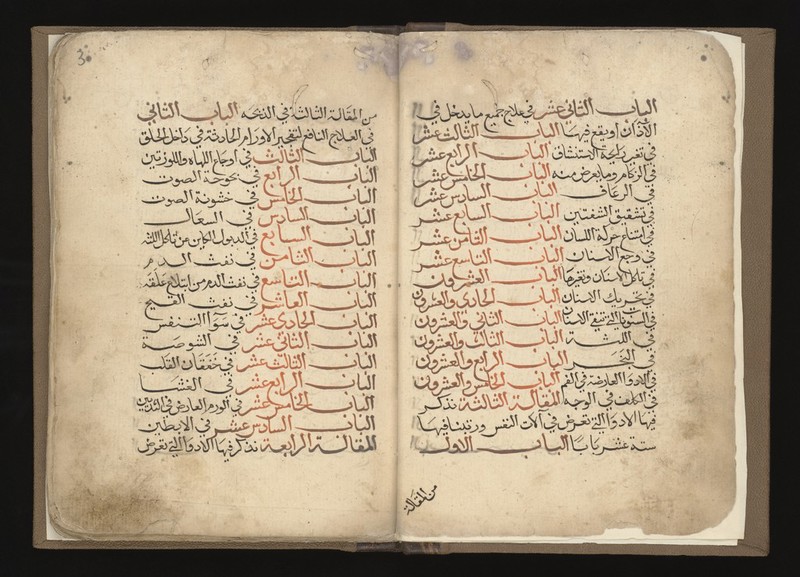 الباب الثاني عشر في علاج جميع ما يدخل في
الاذان او يقع فيها الباب الثالث عشر
في تغير رايحة الاستنشاق الباب الرابع عشر
في الزكام وما يعرض منه الباب الخامس عشر
في الرعاف الباب السادس عشر
في تشقيق الشفتين الباب السابع عشر
في امتناع حركة اللسان الباب الثامن عشر
في وجع الاسنان الباب التاسع عشر
في تاكل الاسنان وتغيرها الباب العشرون
في تحريك الاسنان الباب الحادي والعشرون
في السنونات التي تنقي الاسنان الباب الثاني والعشرون
في اللثة الباب الثالث والعشرون
في البخر الباب الرابع والعشرون
في الادوا العارضة في الفم الباب الخامس والعشرون
في الكلف في الوجه المقالة الثالثة نذكر
فيها الادوا التي تعرض في آلات النفس ورتبنا فيها
ستة عشر بابا الباب الاول
من المقالة
3
من المقالة الثالثة في الذبحه الباب الثاني
في العلاج النافع لتفجير الاورام الحادثة في داخل الحلق
الباب الثالث في اوجاع اللهاه واللوزتين
الباب الرابع في بحوحة الصوت
الباب الخامس في خشونة الصوت
الباب السادس في السعال
الباب السابع في الذبول الكاين من تاكل الرئه
الباب الثامن في نفث الدم
الباب التاسع في نفث الدم من ابتلاع علقه
الباب العاشر في نفث القيح
الباب الحادي عشر في سوا التنفس
الباب الثاني عشر في الشوصة
الباب الثالث عشر في خفقان القلب
الباب الرابع عشر في الغشا
الباب الخامس عشر في الورم العارض في الثديين
الباب السادس عشر في الابطين
المقالة الرابعة نذكر فيها الادوا التي تعرض